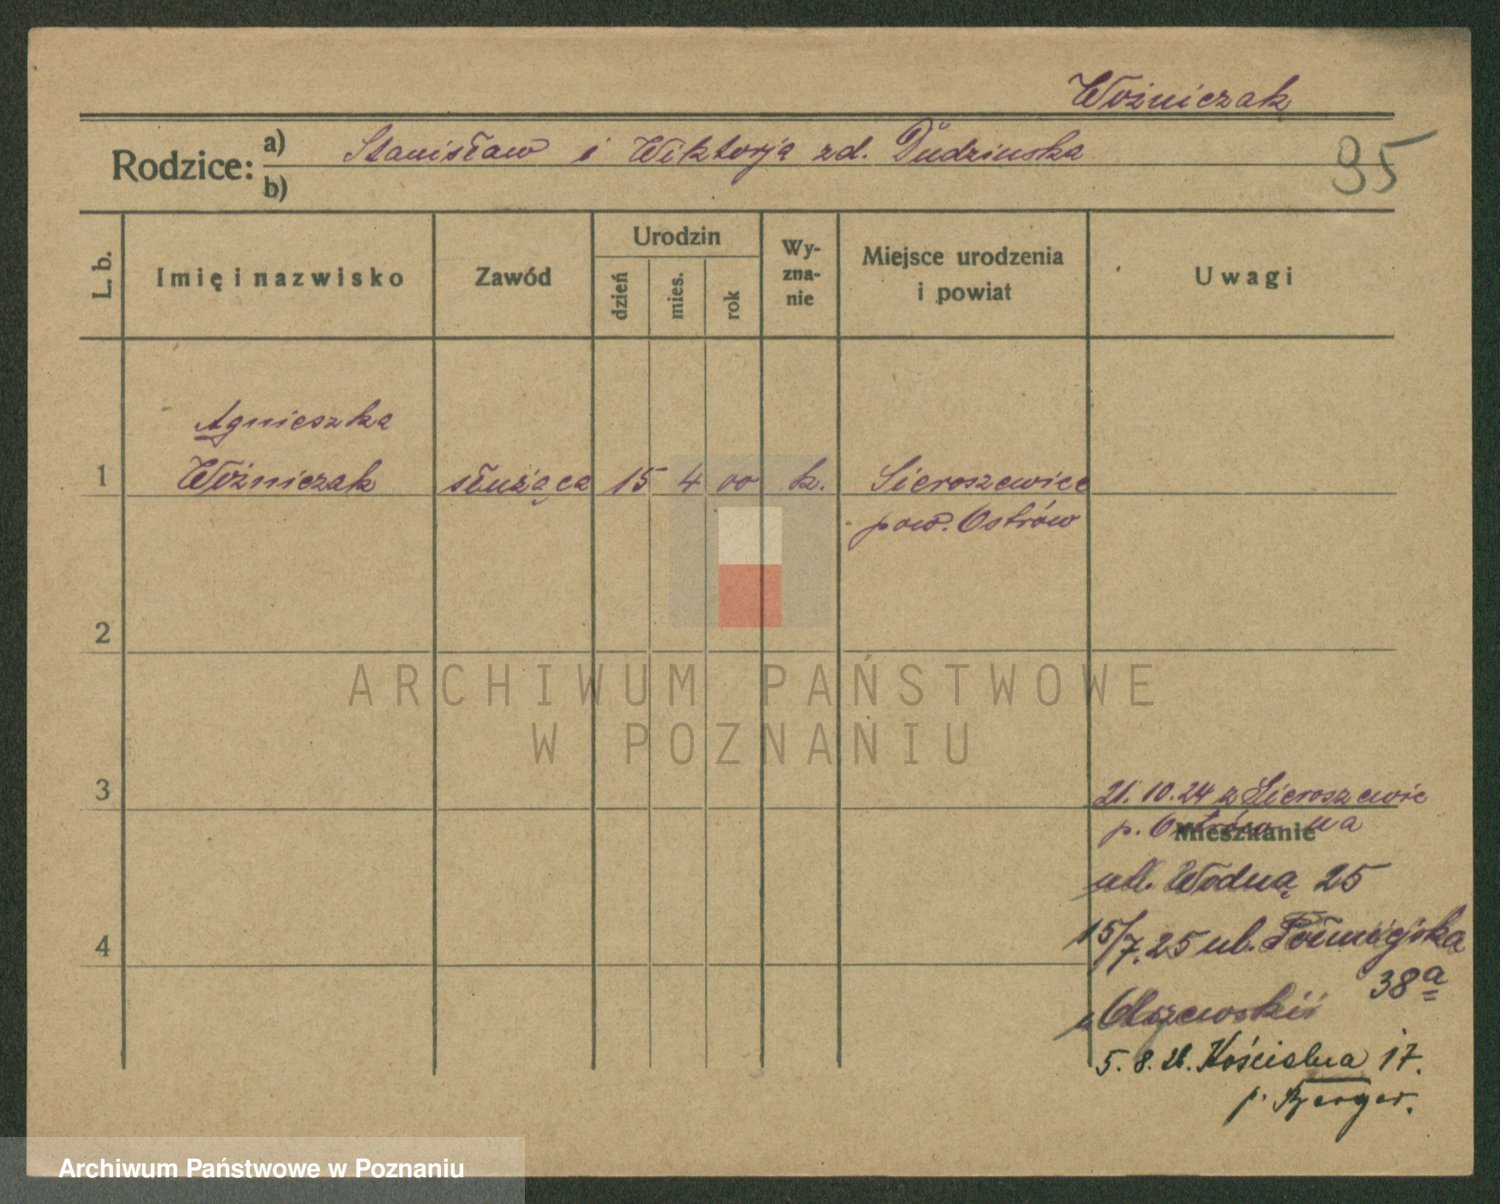 Woźniczak
Rodzice: a) Stanisław i Wiktorja zd. Dudzinska
b)
95
L. b.
Imię i nazwisko
Zawód
Urodzin
dzień
mies.
rok
Wy-
zna-
nie
Miejsce urodzenia
i powiat
Uwagi
Agnieszka
1 Woźniczak służąca 15 4 00 k. Sieroszewice
pow. Ostrów
2
ARCHIWUM PAŃSTWOWE
W POZNANIU
3
21.10.24 z Sieroszewic
p. Ostrów na
Mieszkanie
ul. Wodną 25
4
15/7.25 ul.
38a
5.8.26. Kościelna 17.
p. Berger.
Archiwum Państwowe w Poznaniu